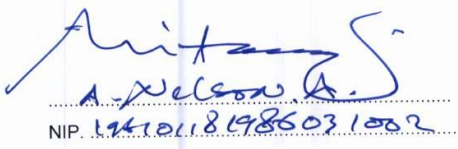 A. Nelson. A.
NIP. 196101181986031002